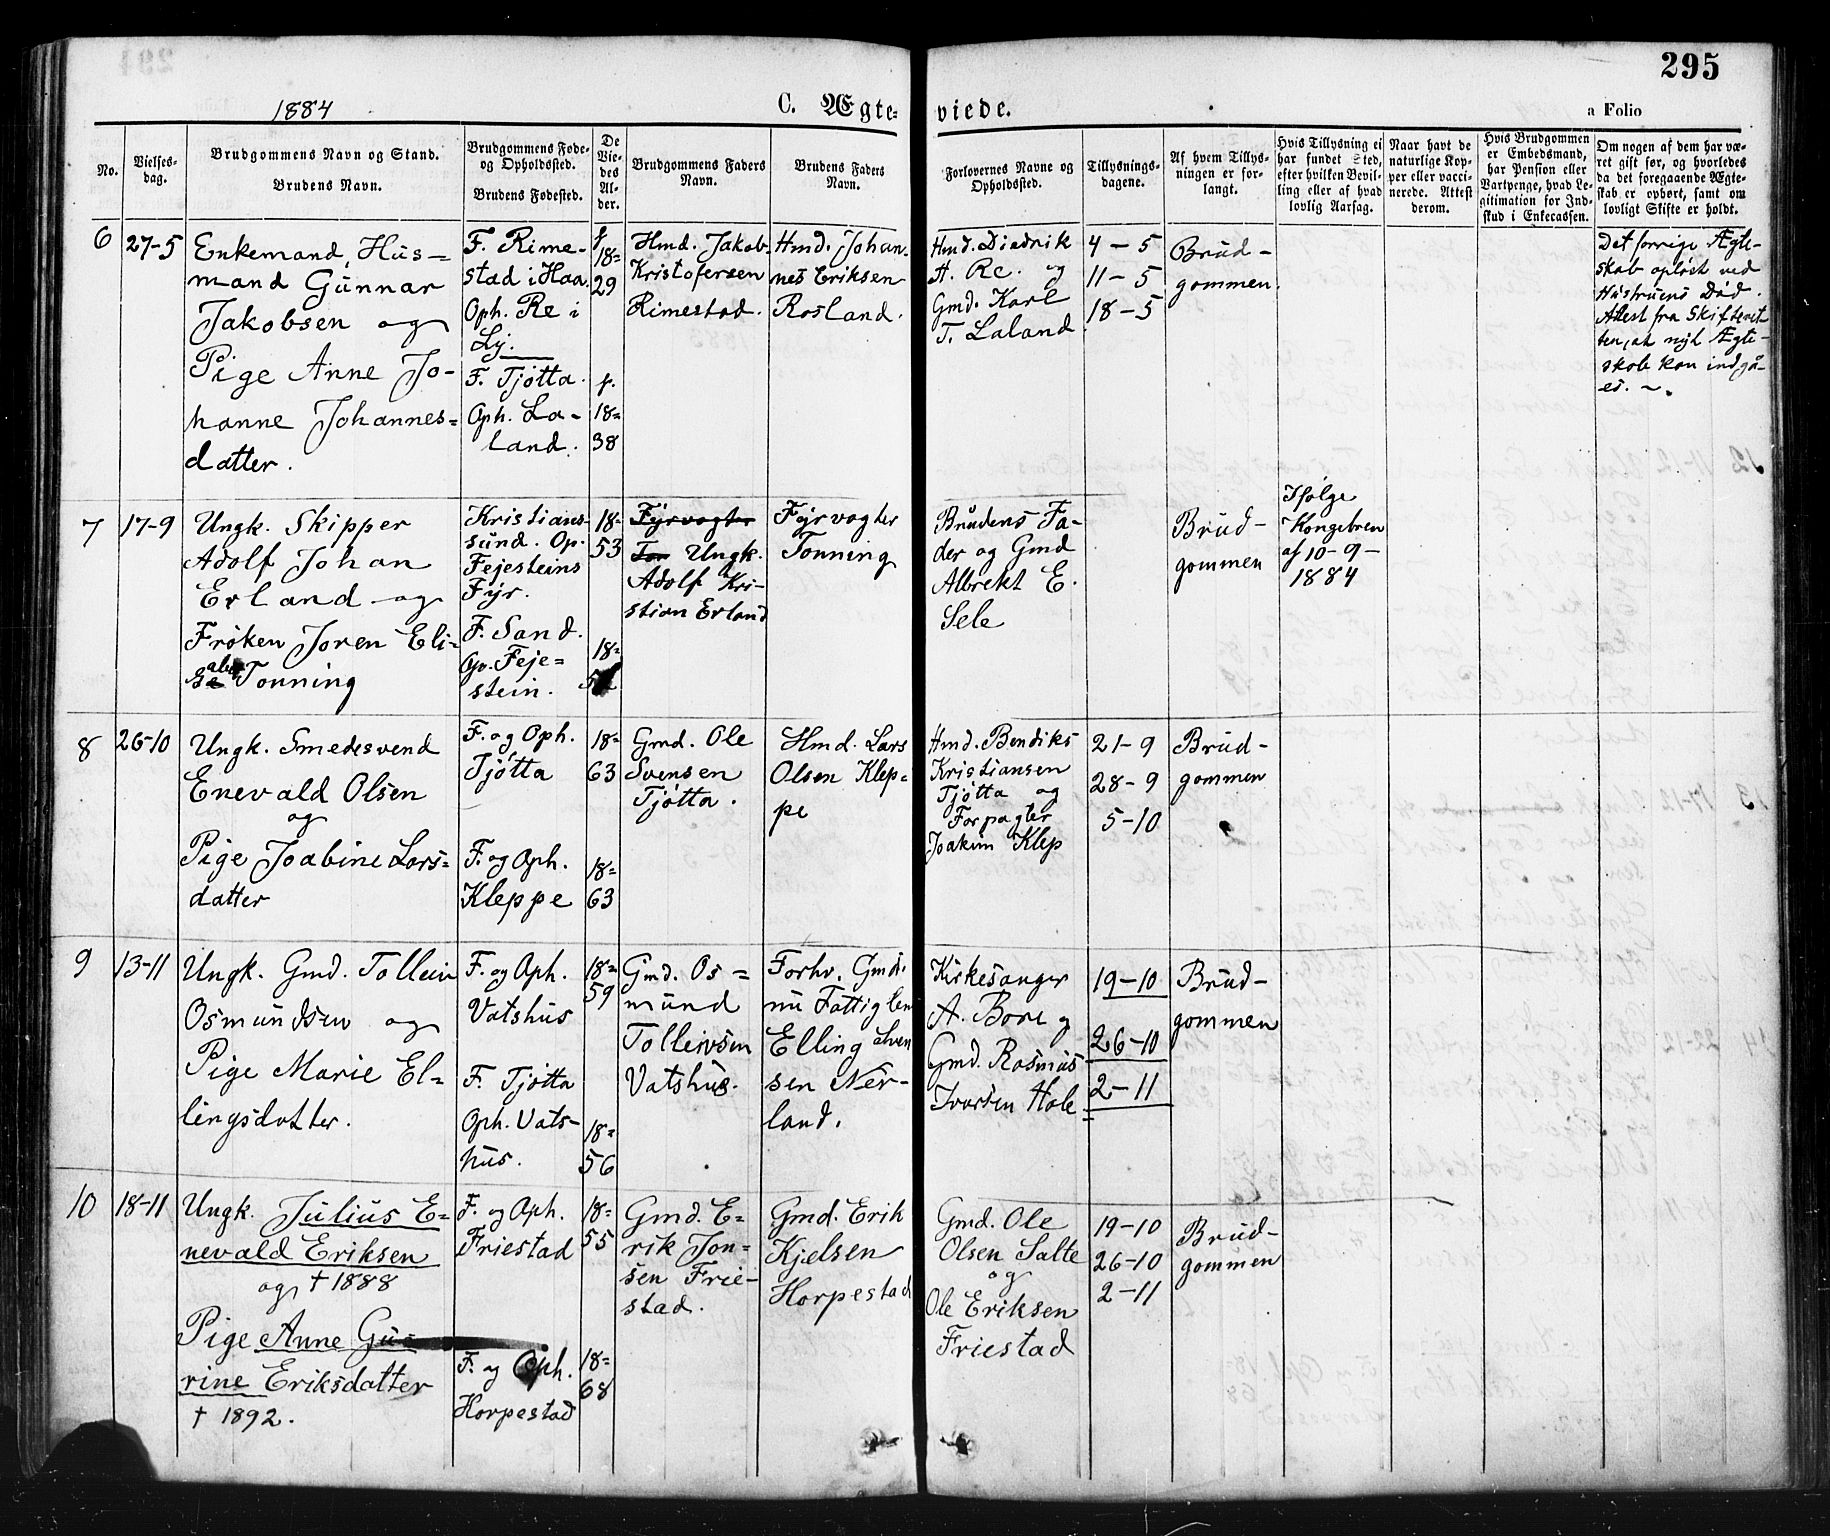 295
1884
C. Ægte-
viede.
a Folio
No.
Vielses-
dag.
Brudgommens Navn og Stand.
Brudens Navn.
Brudgommens Føde-
og Opholdssted.
Brudens Fødested.
De
Vie-
des
Al-
der.
Brudgommens Faders
Navn.
Brudens Faders
Navn.
Forlovernes Navne og
Opholdssted.
Tillysnings-
dagene.
Af hvem Tillys-
ningen er for-
langt.
Hvis Tillysning ei
har fundet Sted,
efter hvilken Bevil-
ling eller af hvad
lovlig Aarsag.
Naar havt de
naturlige Kop-
per eller vacci-
nerede. Attest
derom.
Hvis Brudgommen
er Embedsmand,
har Pension eller
Vartpenge, hvad Le-
gitimation for Ind-
skud i Enkecassen.
Om nogen af dem har væ-
ret gift før, og hvorledes
da det foregaaende Ægte-
skab er ophørt, samt om
lovligt Skifte er holdt.
6
27-5
Enkemand, Hus-
mand Gunnar
Jakobsen og
Pige Anne Jo-
hanne Johannes-
datter.
F. Rime-
stad i Haa.
Oph. Re i
Ly.
F. Tjøtta.
Oph. La-
land.
f.
18=
29
f.
18=
38
Hmd. Jakob
Kristofersen
Rimestad.
Hmd. Johan-
nes Eriksen
Rosland.
Hmd. Diedrik
A. Re. og
Gmd. Karl
T. Laland
4-5
11-5
18-5
Brud-
gommen.
Det forrige Ægte-
skab opløst ved
Hustruens Død.
Attest fra Skifteret-
ten, at nyt Ægte-
skab kan indgå-
es.
7
17-9
Ungk. Skipper
Adolf Johan
Erland og
Frøken Joren Eli-
Tonning
Kristians-
sund. Op.
Fejesteins
Fyr.
F. Sand.
Op. Feje=
stein.
18=
53
18=
Fyrvogter
Ton Ungk.
Adolf Kri-
stian Erland
Fyrvogter
Tonning
Brudens Fa-
der og Gmd
Albrekt E.
Sele
Brud-
gommen
Ifølge
Kongebrev
af 10-9-
1884
8
26-10
Ungk. Smedesvend
Enevald Olsen
og
Pige Joabine Lars=
datter
F. og Oph.
Tjøtta
F. og Oph.
Kleppe
18=
63
18=
63
Gmd. Ole
Svensen
Tjøtta.
Hmd. Lars
Olsen Klep=
pe
Hmd. Bendiks
Kristiansen
Tjøtta og
Forpagter
Joakim Klep
21-9
28-9
5-10
Brud-
gommen
9
13-11
Ungk. Gmd. Tolleiv
Osmundsen og
Pige Marie El=
lingsdatter.
F. og Oph.
Vatshus
F. Tjøtta
Oph. Vats-
hus.
18=
59
18=
56
Gmd. Os=
mund
Tolleivsen
Vatshus.
Forhv. Gmd.
nu Fattiglem
Elling
sen Nær-
land.
Kirkesanger
A. Bore og
Gmd. Rasmus
Ivarsen Hole
19-10
26-10
2-11
Brud-
gommen
10
18-11
Ungk. Julius E=
nevald Eriksen
og † 1888
Pige Anne Gu=
rine Eriksdatter
† 1892.
F. og Oph.
Friestad
F. og Oph.
Horpestad
18=
55
18=
68
Gmd. E=
rik Jon=
sen Frie-
stad.
Gmd. Erik
Kjelsen
Horpestad
Gmd. Ole
Olsen Salte
og
Ole Eriksen
Friestad
19-10
26-10
2-11
Brud-
gommen